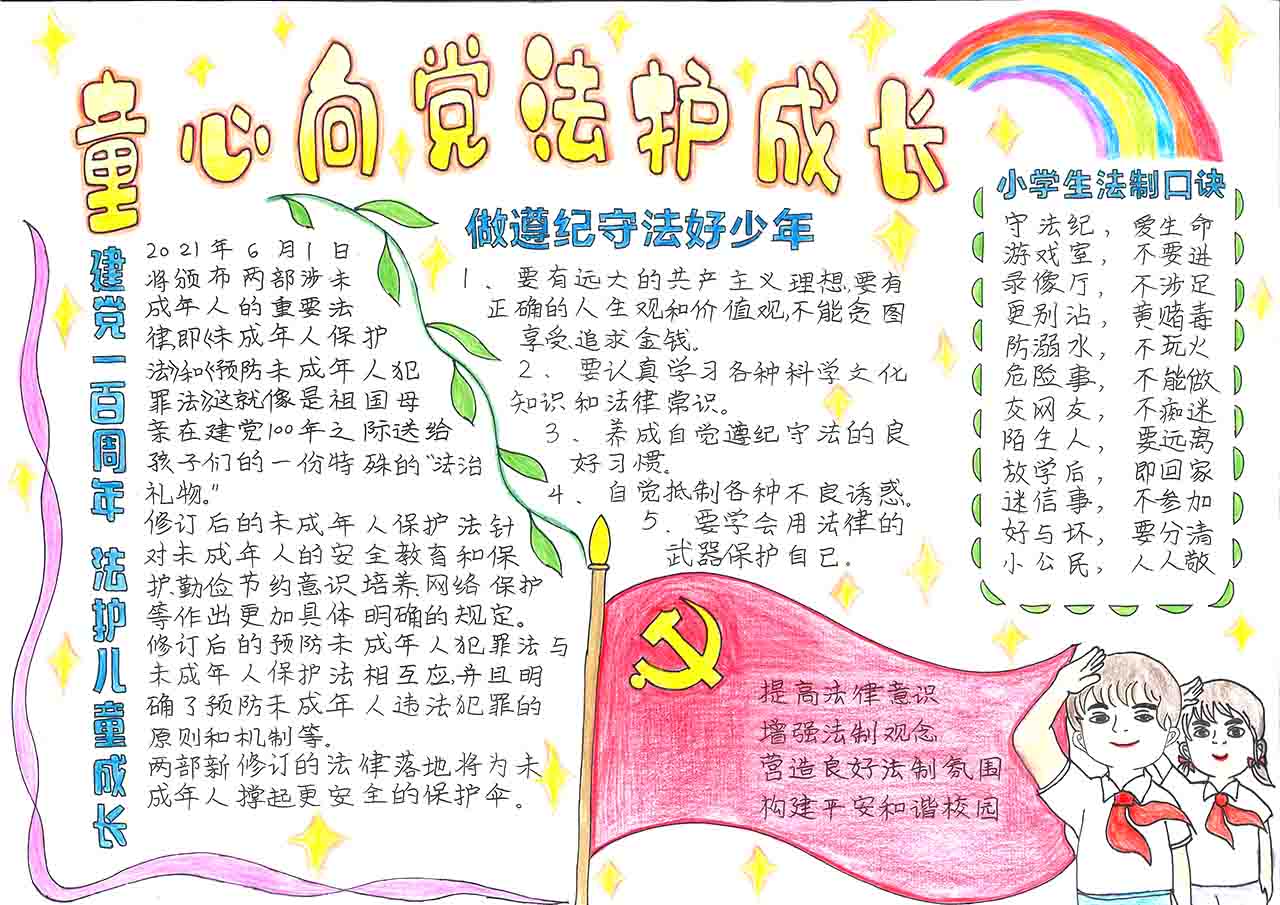 童心向党法护成长
建党一百周年 法护儿童成长
2021年6月1日
将颁布两部涉未
成年人的重要法
律,即《未成年人保护
法》和《预防未成年人犯
罪法》这就像是祖国母
亲在建党100年之际送给
孩子们的一份特殊的“法治
礼物。”
修订后的未成年人保护法针
对未成年人的安全教育和保
护、勤俭节约意识培养、网络保护
等作出更加具体明确的规定。
修订后的预防未成年人犯罪法与
未成年人保护法相互应,并且明
确了预防未成年人违法犯罪的
原则和机制等。
两部新修订的法律落地将为未
成年人撑起更安全的保护伞。
做遵纪守法好少年
1、要有远大的共产主义理想,要有
正确的人生观和价值观,不能贪图
享受、追求金钱。
2、要认真学习各种科学文化
知识和法律常识。
3、养成自觉遵纪守法的良
好习惯。
4、自觉抵制各种不良诱惑。
5、要学会用法律的
武器保护自己.
小学生法制口诀
守法纪，爱生命
游戏室，不要进
录像厅，不涉足
更别沾，黄赌毒
防溺水，不玩火
危险事，不能做
交网友，不痴迷
陌生人，要远离
放学后，即回家
迷信事，不参加
好与坏，要分清
小公民，人人敬
提高法律意识
增强法制观念
营造良好法制氛围
构建平安和谐校园